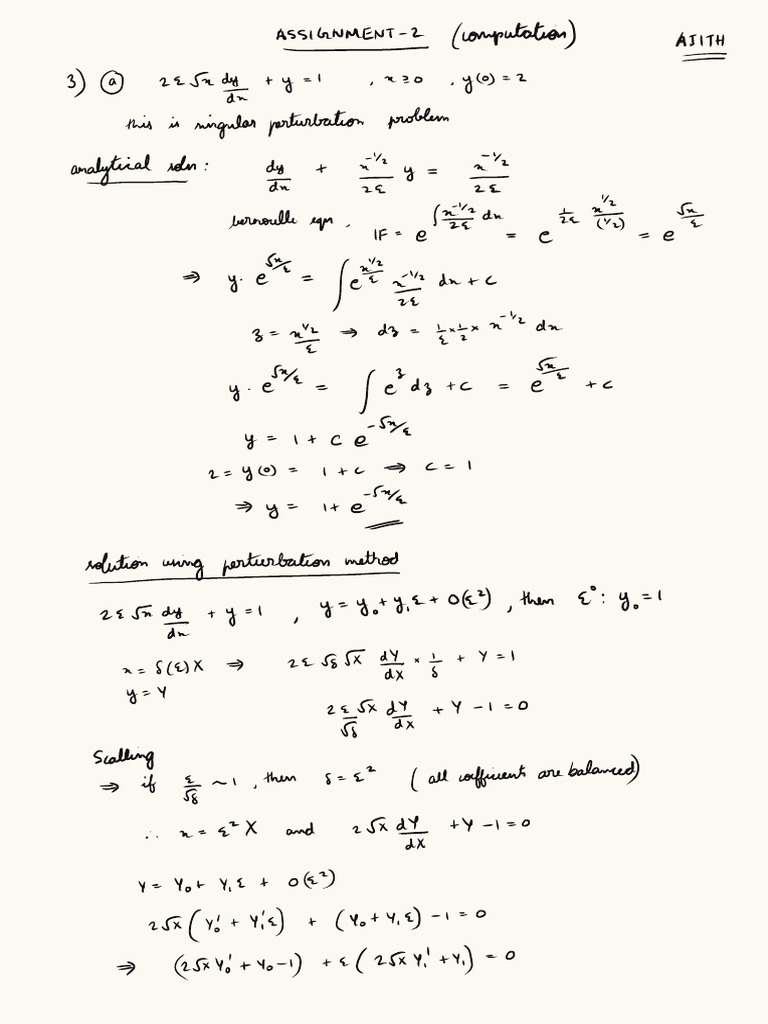 ASSIGNMENT-2 (computation)
AJITH
3) (a) 2ε√x dy/dx + y = 1 , x ≥ 0 , y(0) = 2
this is singular perturbation problem
analytical soln : dy/dx + x^{-1/2}/2ε y = x^{-1/2}/2ε
bernoulle eqn , IF = e^{∫ x^{-1/2}/2ε dx} = e^{1/2ε x^{1/2}/(1/2)} = e^{√x/ε}
⇒ y. e^{√x/ε} = ∫ e^{x^{1/2}/ε} x^{-1/2}/2ε dx + c
z = x^{1/2}/ε ⇒ dz = 1/ε × 1/2 × x^{-1/2} dx
y. e^{√x/ε} = ∫ e^z dz + c = e^{√x/ε} + c
y = 1 + c e^{-√x/ε}
2 = y(0) = 1 + c ⇒ c = 1
⇒ y = 1 + e^{-√x/ε}
solution using perturbation method
2ε√x dy/dx + y = 1 , y = y₀ + y₁ε + O(ε²) , then ε⁰ : y₀ = 1
x = δ(ε)X ⇒ 2ε √δ √X dY/dX × 1/δ + Y = 1
y = Y
2ε/√δ √X dY/dX + Y - 1 = 0
Scalling
⇒ if ε/√δ ~ 1 , then δ = ε² ( all coefficient are balanced)
∴ x = ε² X and 2√X dY/dX + Y - 1 = 0
Y = Y₀ + Y₁ε + O(ε²)
2√X (Y₀' + Y₁'ε) + (Y₀ + Y₁ε) - 1 = 0
⇒ (2√X Y₀' + Y₀ - 1) + ε ( 2√X Y₁' + Y₁) = 0